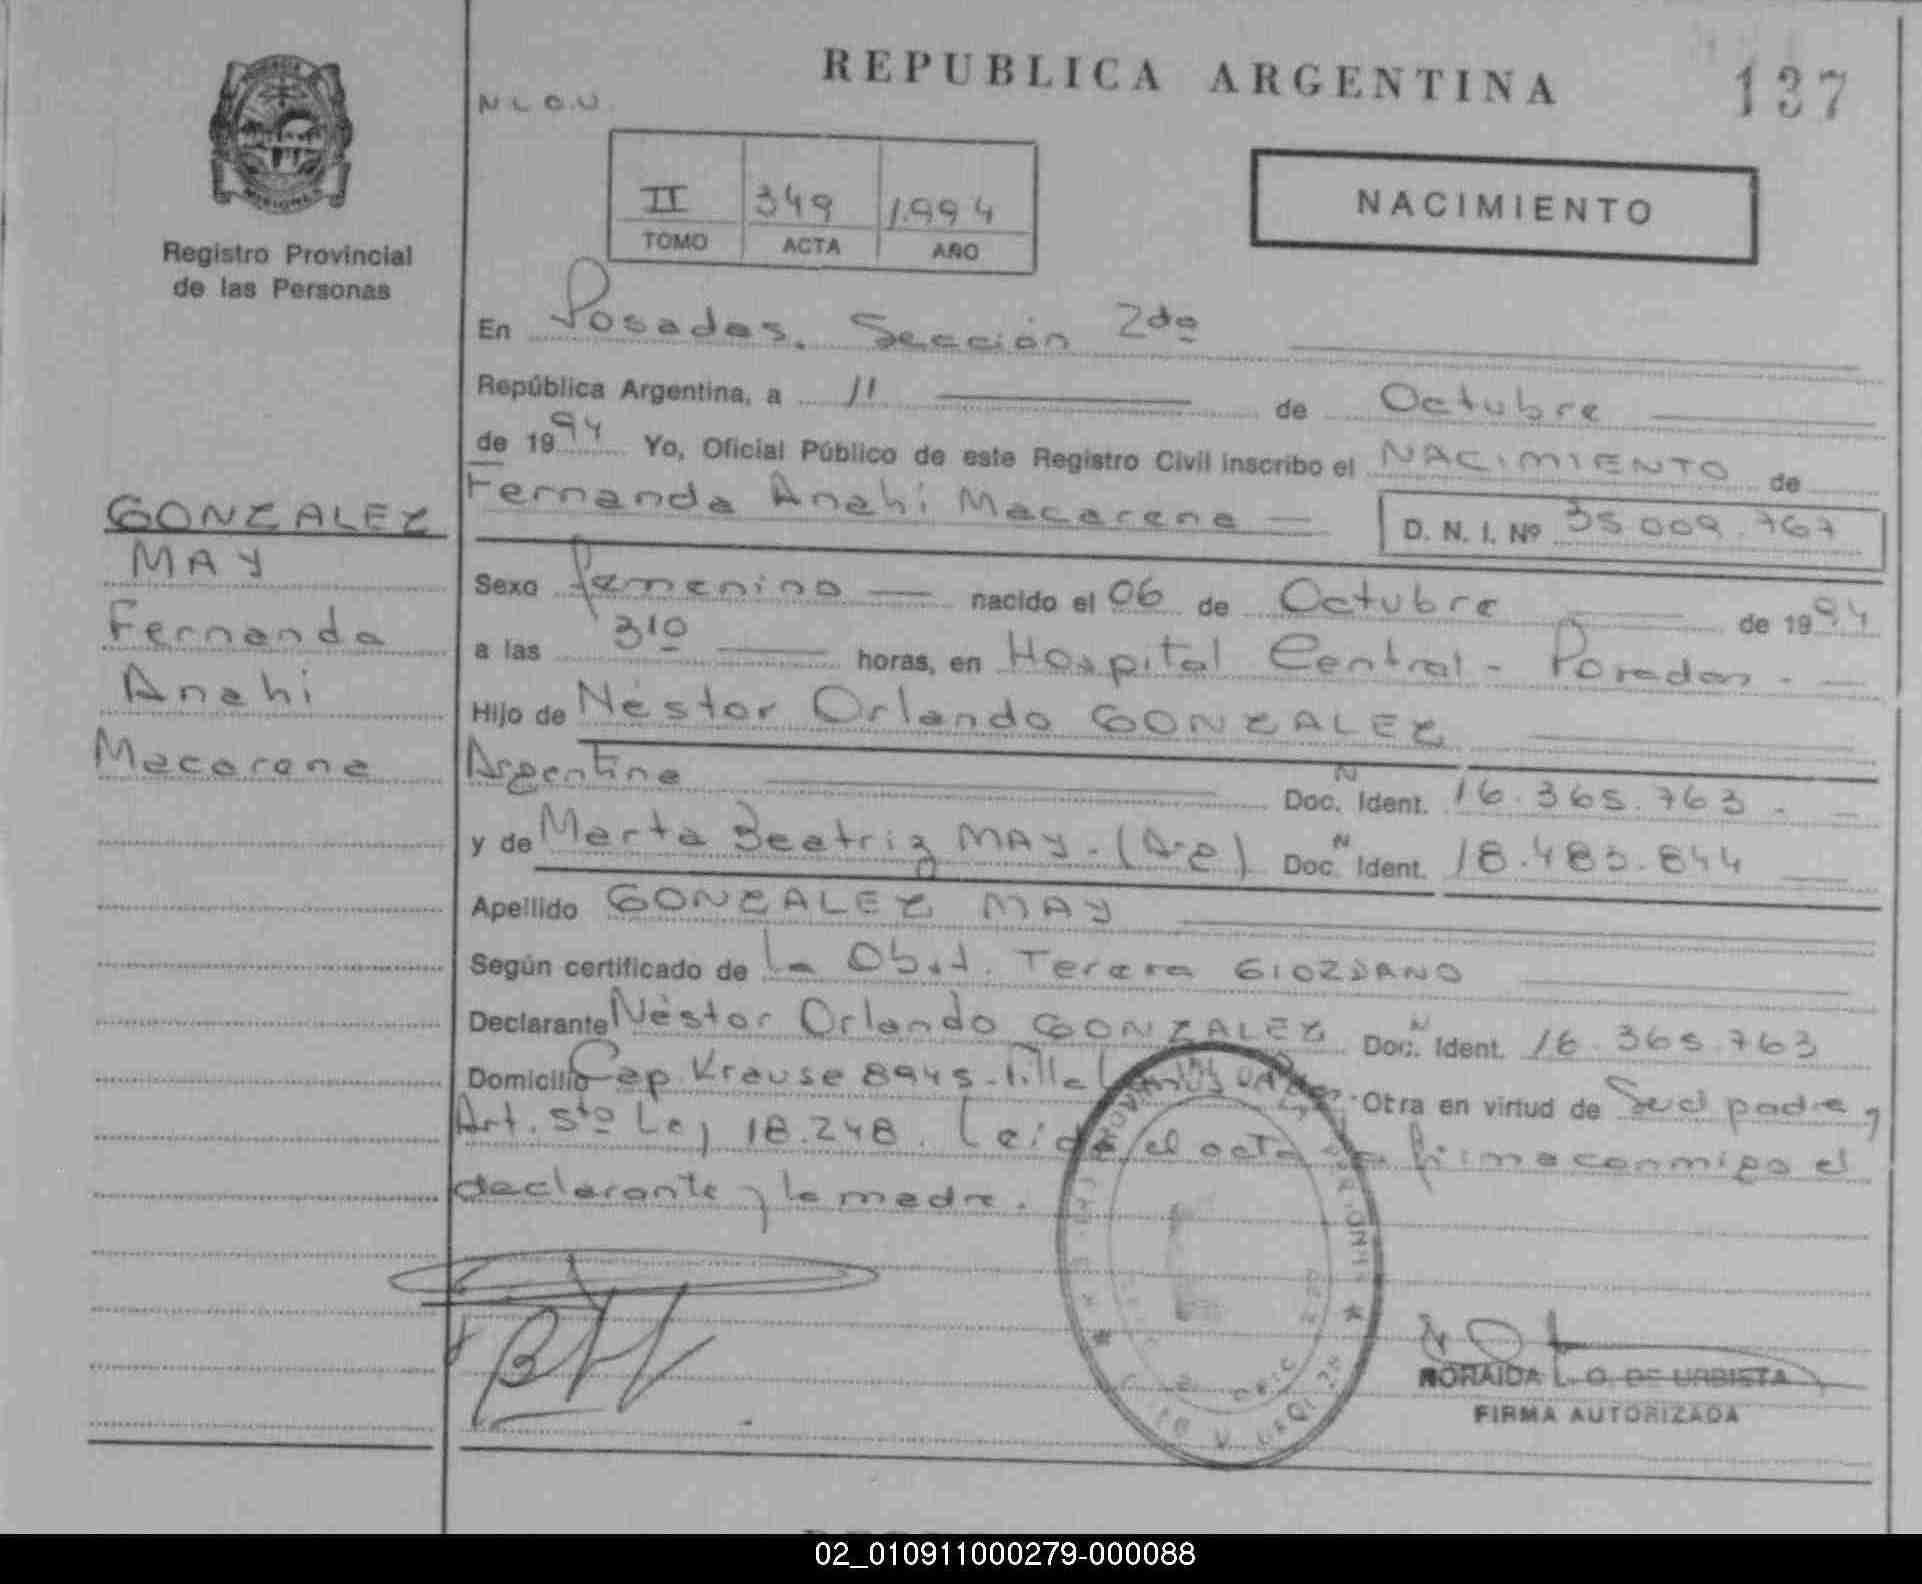 REPUBLICA ARGENTINA
137
N L O U
II 349 1.994
TOMO ACTA AÑO
NACIMIENTO
Registro Provincial
de las Personas
En Posadas. Sección 2da
República Argentina, a 11 de Octubre
de 1994 Yo, Oficial Público de este Registro Civil inscribo el NACIMIENTO de
Fernanda Anahi Macarena D. N. I. Nº 35.009.767
Sexo femenino nacido el 06 de Octubre de 1994
a las 310 horas, en Hospital Central - Posadas. -
Hijo de Néstor Orlando GONZALEZ
Argentino Doc. N Ident. 16.365.763. -
y de Marta Beatriz MAY. (Arg) Doc. N Ident. 18.483.844
Apellido GONZALEZ MAY
Según certificado de la Obst. Teresa GIORDANO
Declarante Néstor Orlando GONZALEZ Doc. N Ident. 16.365.763
Domicilio Cap. Krause 8945 - Villa Otra en virtud de Ser el padre y
Art. 5to Ley 18.248. Leida el acta la firma conmigo el
declarante y la madre.
GONZALEZ
MAY
Fernanda
Anahi
Macarena
NORAIDA L. O. DE URBIETA
FIRMA AUTORIZADA
02_010911000279-000088